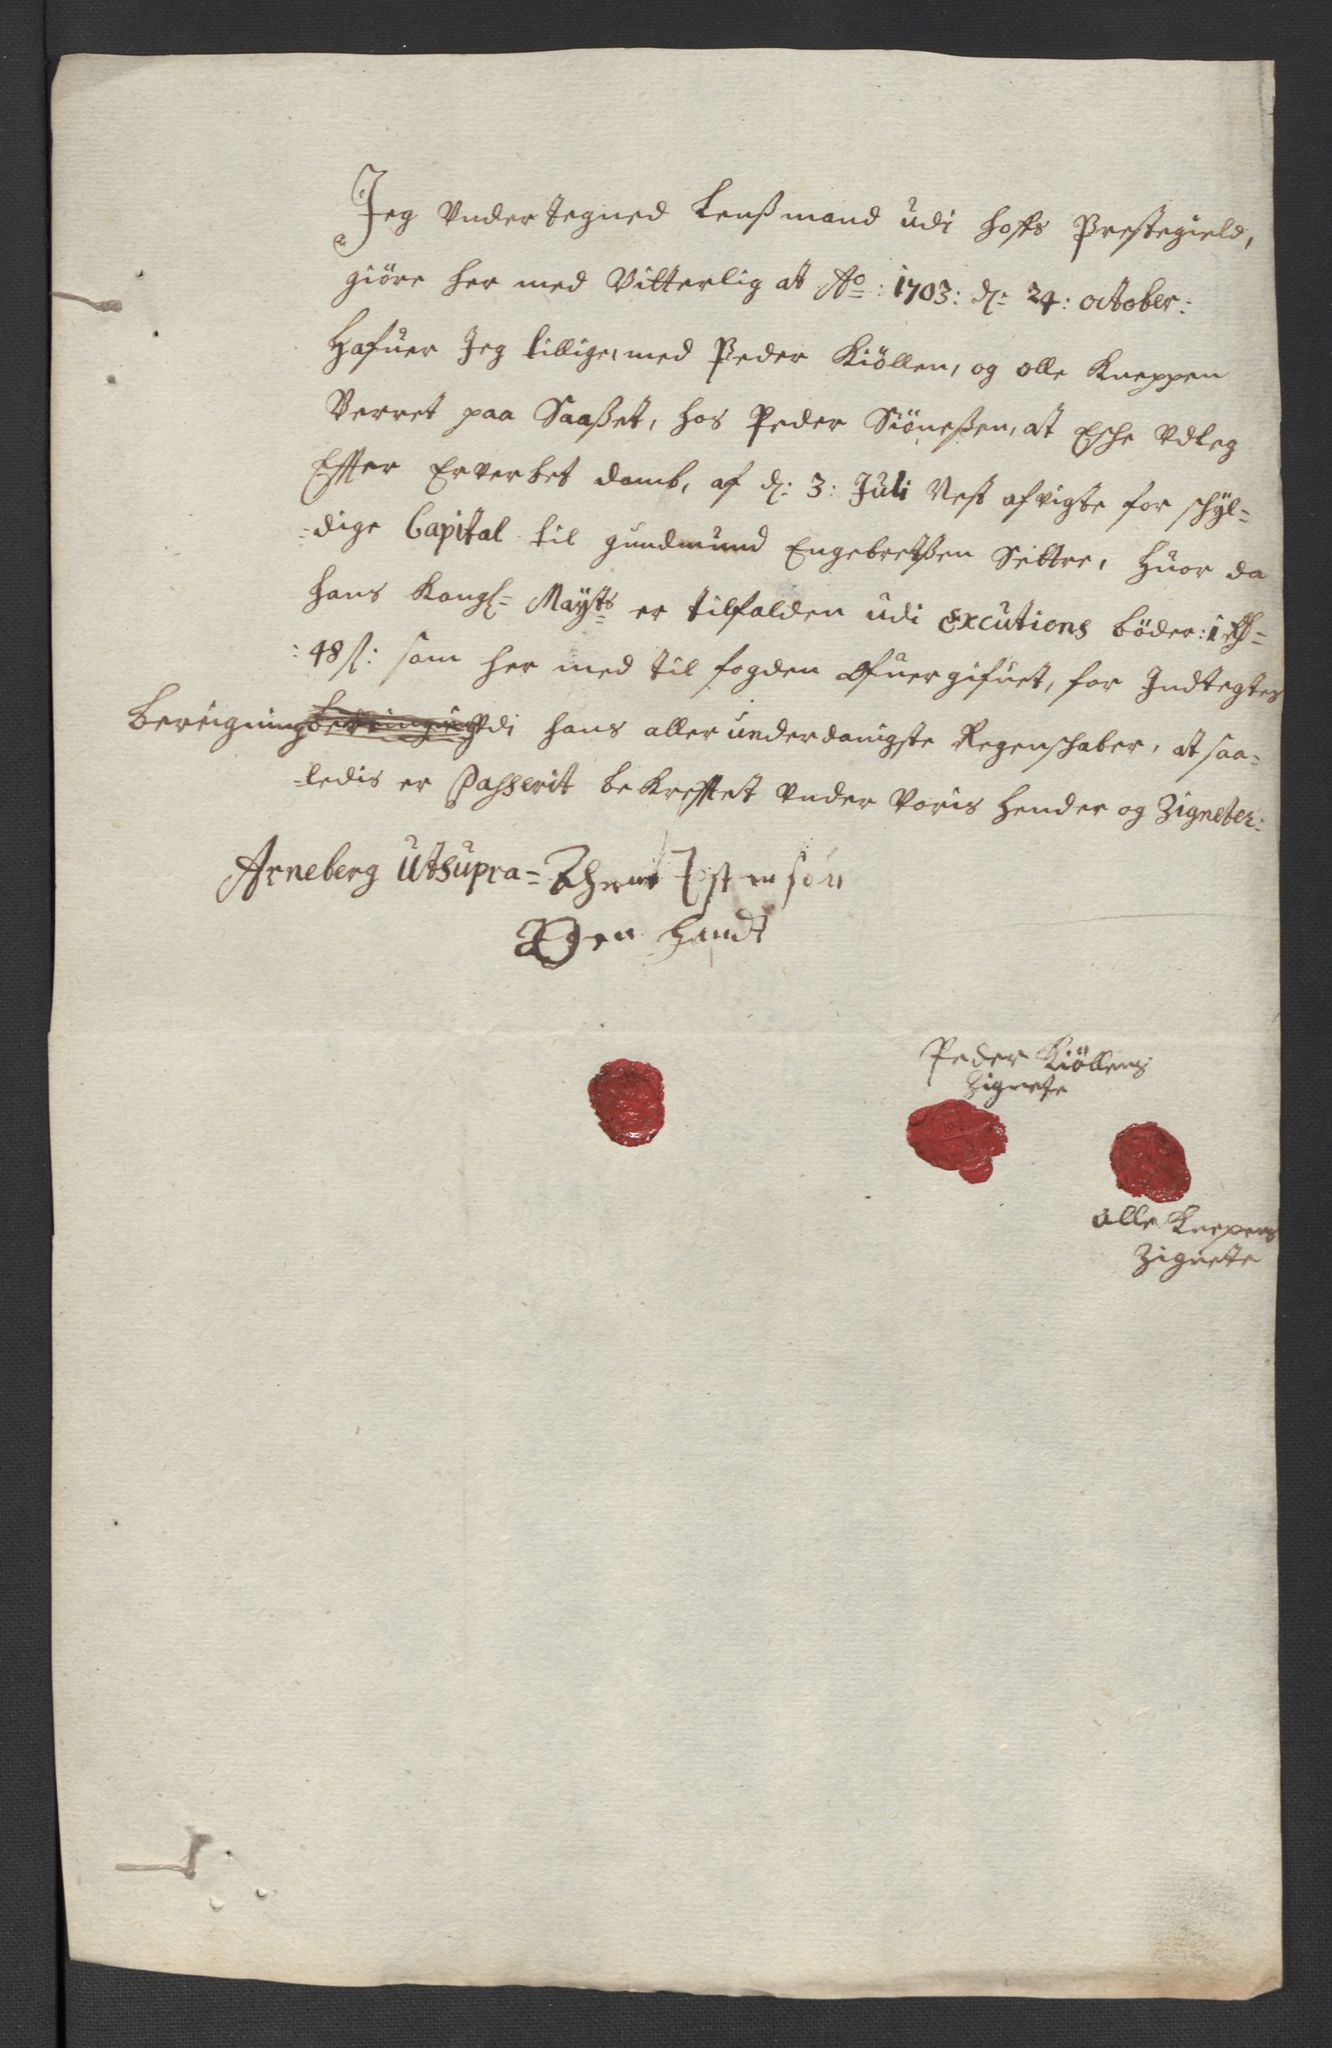 Jeg Vndertegned Lenßmand udi hoffs Prestegield,
giöre her med Vitterlig at Ao: 1703: d: 24: october:
Hafuer Jeg tillige, med Peder Kiöllen, og olle Kneppen
Verret paa Saaßet, hos Peder Siöneßen, at Eshe Vdleg
Effter Erverbet domb, af d: 3: Juli Nest afvigte for schÿl=
=dige Capital til gundmund Engebretßen Settre, Huor da
hans Kongl= Maÿts er tilfalden udi Excutions böder: 1 Rd=
:48 s: som her med til fogden Ofuergifuet, for Indtegtes
bereigning Vdi hans aller underdanigste Regenschaber, at saa=
=ledis er Passerit bekrefftet Vnder Voris Hender og Zigneter:
Arneberg Utsupra= Estensön
Egen Handt
Peder Kiöllens
Zignete
olle Knepens
Zignete